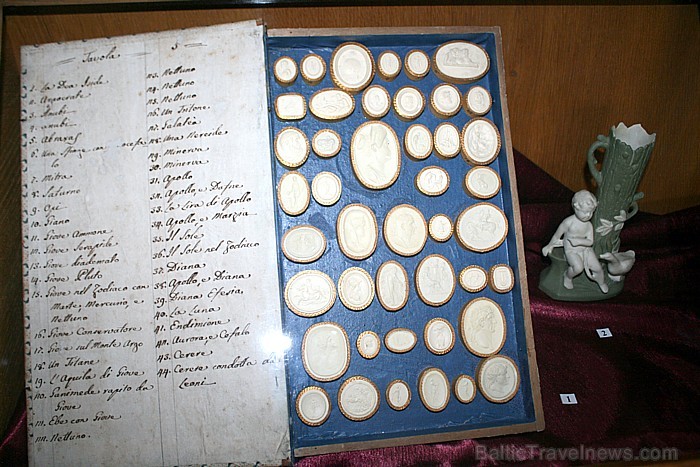 Tavola 3
1. La Dea Iside
2. Arpocrate
3. Anubi
4. Anubi
5. Abraxas
6. Una Sfinge con
lo
7. Mitra
8. Saturno
9. Opi
10. Giano
11. Giove Ammone
12. Giove Serapide
13. Giove
14. Giove Pluto
15. Giove nel Zodiaco con
Marte, Mercurio, e
Nettuno
16. Giove Conservatore
17. Giove sul Monte Argo
18. Un Titane
19. L'Aquila di Giove
Ganimede rapito da
Giove
Ebe con Giove
Nettuno.
Nettuno
Nettuno
Nettuno
Un Tritone
Galatea
Una Nereide
Minerva
30. Minerva
31. Apollo
32. Apollo, e Dafne
33. La Lira di Apollo
34. Apollo, e Marsia
35. Il Sole
36. Il Sole nel Zodiaco
37. Diana
38. Apollo, e Diana
39. Diana Efesia
40. La Luna
41. Endimione
42. Aurora, e Cefalo
43. Cerere
44. Cerere condotta da
Leoni
2
1
© BalticTravelnews.com